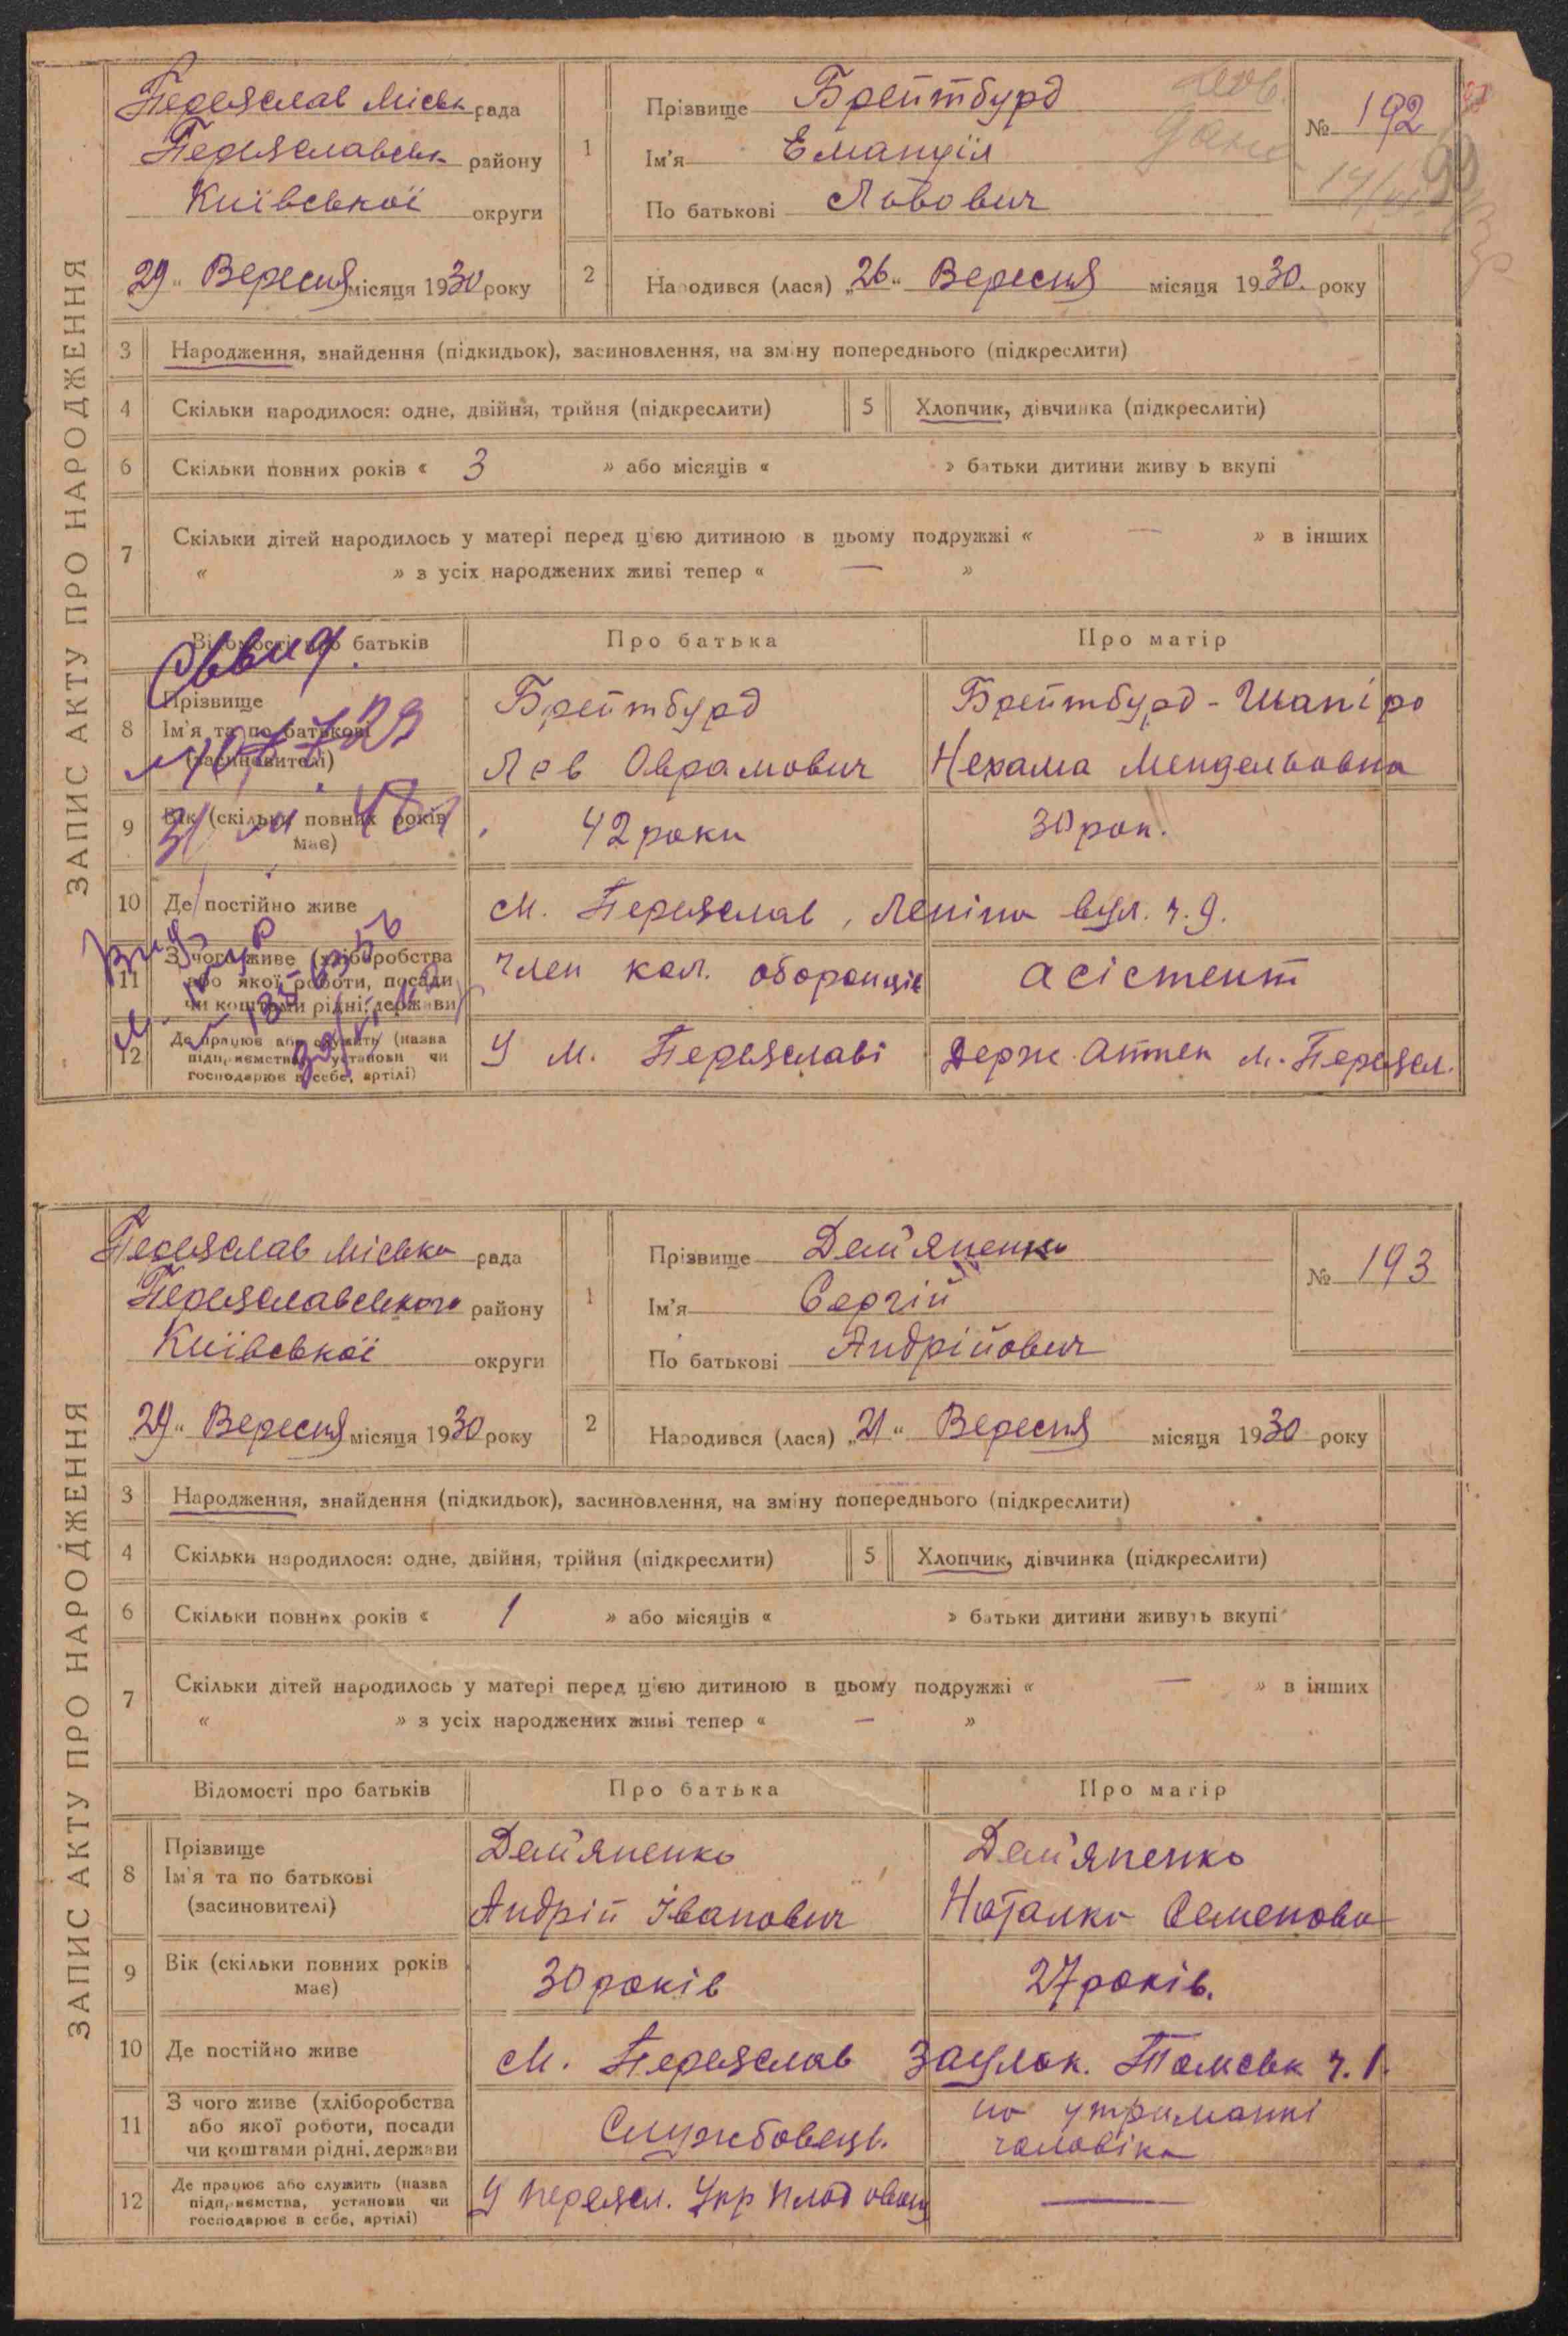 ЗАПИС АКТУ ПРО НАРОДЖЕННЯ
Переяслав Міськ рада
Переяславськ району
Київської округи
29 " Вересня місяця 1930 року
1
Прізвище Брейтбурд
Ім'я Емануїл
По батькові Львович
№ 192
2
Народився (лася) „26" Вересня місяця 1930. року
3 Народження, знайдення (підкидьок), засиновлення, на зміну попереднього (підкреслити)
4 Скільки народилося: одне, двійня, трійня (підкреслити) 5 Хлопчик, дівчинка (підкреслити)
6 Скільки повних років « 3 » або місяців « » батьки дитини живуть вкупі
7 Скільки дітей народилось у матері перед цією дитиною в цьому подружжі « — » в інших
« » з усіх народжених живі тепер « — »
Відомості про батьків Про батька Про матір
8 Прізвище
Ім'я та по батькові
(засиновителі)
Брейтбурд
Лев Оврамович
Брейтбурд-Шапіро
Нехама Мендельовна
9 Вік (скільки повних років має)
42 роки
30 рок.
10 Де постійно живе м. Переяслав, Леніна вул. ч. 9.
11 З чого живе (хліборобства
або якої роботи, посади
чи коштами рідні, держави
член кол. оборонців
асістент
12 Де працює або служить (назва
підприємства, установи чи
господарює в себе, артілі)
У м. Переяславі
Держ. Аптек м. Переясл.
ЗАПИС АКТУ ПРО НАРОДЖЕННЯ
Переяслав Міська рада
Переяславського району
Київської округи
„29" Вересня місяця 1930 року
1
Прізвище Дем'яненко
Ім'я Сергій
По батькові Андрійович
№ 193
2
Народився (лася) „21" Вересня місяця 1930 року
3 Народження, знайдення (підкидьок), засиновлення, на зміну попереднього (підкреслити)
4 Скільки народилося: одне, двійня, трійня (підкреслити) 5 Хлопчик, дівчинка (підкреслити)
6 Скільки повних років « 1 » або місяців « » батьки дитини живуть вкупі
7 Скільки дітей народилось у матері перед цією дитиною в цьому подружжі « — » в інших
« » з усіх народжених живі тепер « — »
Відомості про батьків Про батька Про матір
8 Прізвище
Ім'я та по батькові
(засиновителі)
Дем'яненко
Андрій Іванович
Дем'яненко
Наталка Семенова
9 Вік (скільки повних років має)
30 років
27 років.
10 Де постійно живе м. Переяслав Заулок. Томськ ч. 1.
11 З чого живе (хліборобства
або якої роботи, посади
чи коштами рідні, держави
Службовець.
на утриманні
чоловіка
12 Де працює або служить (назва
підприємства, установи чи
господарює в себе, артілі)
У Переясл. Укр Плод овощ
—